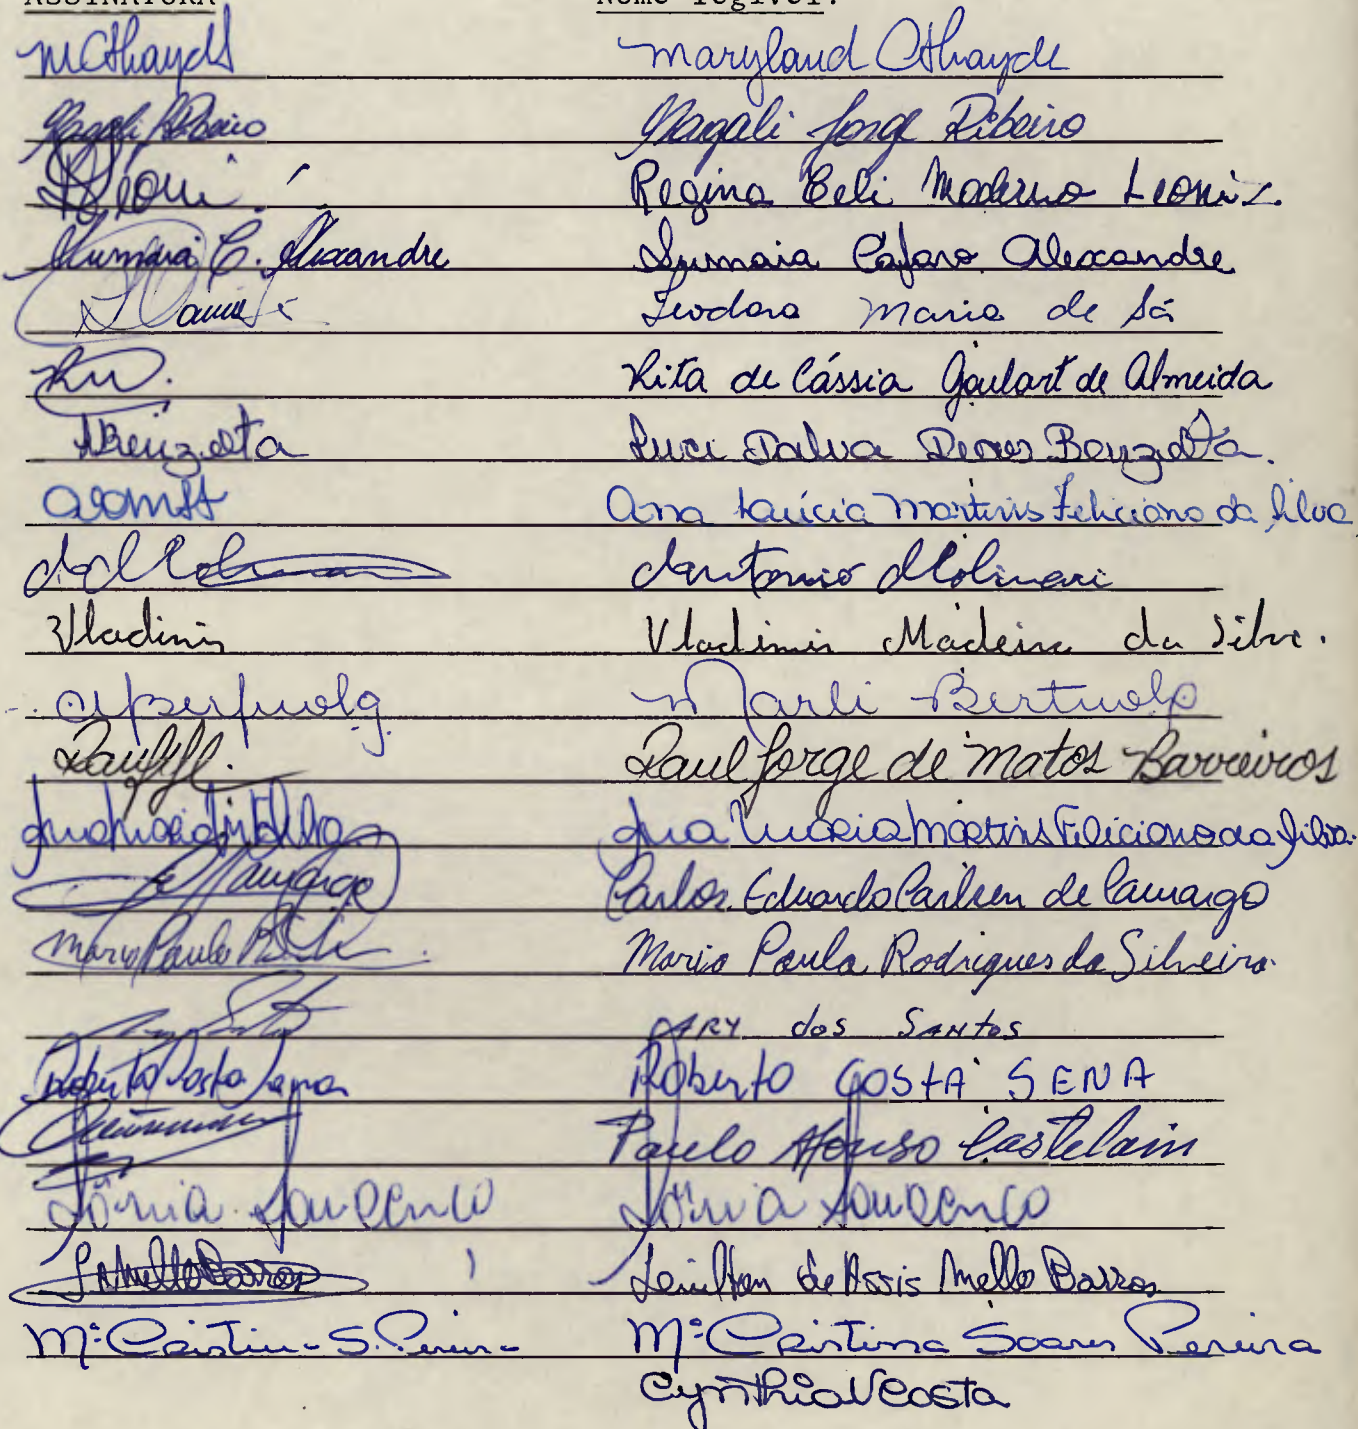 ASSINATURA Nome legível:
MCthayde Maryland Cthayde
Magali JRibeiro Magali Jorge Ribeiro
Regina Celi Moderno Leoni
Sumaia C. Alexandre Sumaia Cafaro Alexandre
Teodora Maria de Sá
Rita de Cássia Goulart de Almeida
Benzotta Luci Dalva Benzotta.
Ana Lúcia Martins Feliciano da Silva
Antonio Molinari
Vladimir Vladimir Madeira da Silva.
Marli Bertuolo
Raul Jorge de Matos Barreiros
Ana Maria Martins Feliciano da Silva.
Camargo Carlos Eduardo Carlsen de Camargo
Maria Paula Maria Paula Rodrigues da Silveira.
ARY dos SANTOS
Roberto Costa Sena Roberto COSTA SENA
Paulo Afonso Castelain
Sônia Lourenço Sônia Lourenço
LAMello Barros Lenilton de Assis Mello Barros
Mª Cristina S. Pereira Mª Cristina Soares Pereira
Cynthia V Costa